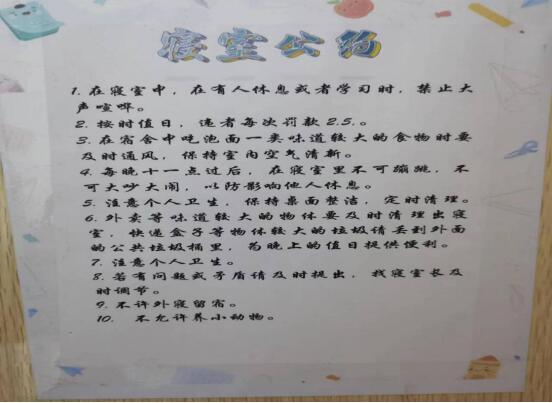 寝室公约
1. 在寝室中，在有人休息或者学习时，禁止大
声喧哗。
2. 按时值日，违者每次罚款2.5.。
3. 在宿舍中吃泡面一类味道较大的食物时要
及时通风，保持室内空气清新。
4. 每晚十一点过后，在寝室里不可蹦跳，不
可大吵大闹，以防影响他人休息。
5. 注意个人卫生，保持桌面整洁，定时清理。
6. 外卖等味道较大的物体要及时清理出寝
室，快递盒子等物体较大的垃圾请丢到外面
的公共垃圾桶里，为晚上的值日提供便利。
7. 注意个人卫生。
8. 若有问题或矛盾请及时提出，找寝室长及
时调节。
9. 不许外寝留宿。
10. 不允许养小动物。